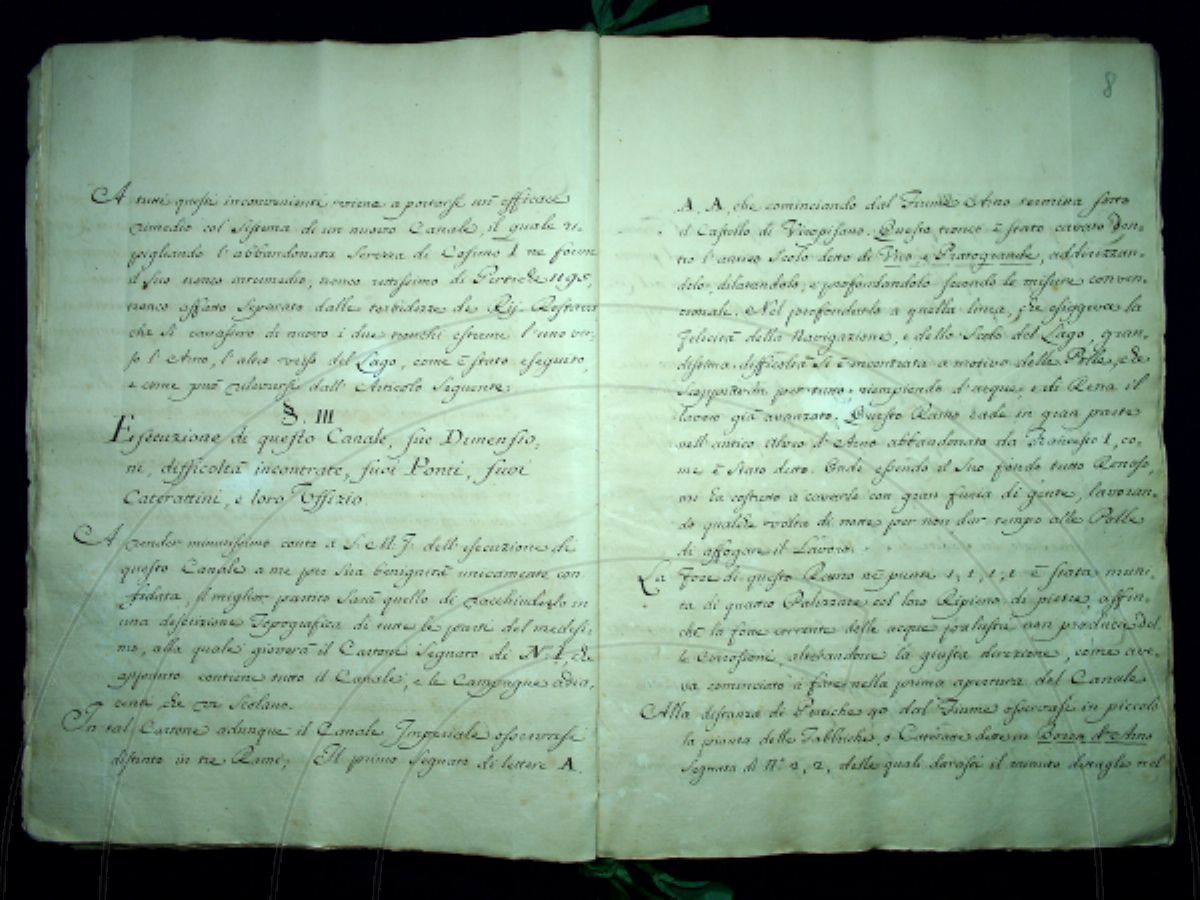 A tutti questi inconvenienti viene a portarsi un' efficace
rimedio col sistema di un nuovo Canale, il quale ri-
pigliando l'abbandonata Serezza di Cosimo I ne forme
il suo tronco intermedio, tronco rettissimo di Pertiche 1195,
tronco affatto separato dalle torbidezze de Rij. Restava
che si cavassero di nuovo i due tronchi estremi l'uno ver-
so l'Arno, l'altro verso del Lago, come è stato eseguito,
e come può rilevarsi dall'Articolo Seguente.
§. III
Essecuzione di questo Canale, sue Dimensio,
ni, difficoltà incontrate, suoi Ponti, suoi
Caterattini, e loro Uffizio.
A render minutissimo conto a S. M. I. dell'esecuzione di
questo Canale a me per sua benignità unicamente con
fidata, il miglior partito sarà quello di racchiuderlo in
una descrizione Topografica di tutte le parti del medesi-
mo, alla quale gioverà il Cartone segnato di N. I, che
appunto contiene tutto il Canale, e le Campagne adia,
centi che vi Scolano.
In tal Cartone adunque il Canale Imperiale osservasi
distinto in tre Rami; Il primo segnato di lettere A,
8
A. A, che cominciando dal Fiume Arno termina sotto
il Castello di Vicopisano. Questo tronco è stato cavato den-
tro l'antico Scolo detto di Vico, e Pratogrande, addirizzan-
dolo, dilatandolo, e profondandolo secondo le misure conven-
zionali. Nel profondarlo a quella linea, che esiggeva la
felicità della Navigazione, e dello Scolo del Lago, gran-
dissima difficoltà si è incontrata a motivo delle Polle, che
scoppiavan per tutto, riempiendo d'acque, e di Rena il
lavoro già avanzato. Questo Ramo cade in gran parte
nell'antico Alveo d'Arno abbandonato da Francesco I, co-
me è stato detto. Onde essendo il suo fondo tutto Renoso,
mi ha costretto a cavarlo con gran furia di gente, lavoran-
do qualche volta di notte per non dar tempo alle Polle
di affogare il Lavoro.
La foce di questo Ramo ne' punti 1, 1, 1, 1 è stata muni-
ta di quattro Palizzate col loro Ripieno di pietre, affin-
chè la forte corrente delle acque palustri non produca del
le Corrosioni, alterandone la giusta direzione, come ave-
va cominciato a fare nella prima apertura del Canale
Alla distanza di Pertiche 90 dal Fiume osservasi in piccolo
la pianta delle Fabbriche, o Cateratte dette in Bocca d'Arno
segnata di N.º 2, 2, delle quali darassi il minuto dettaglio nel